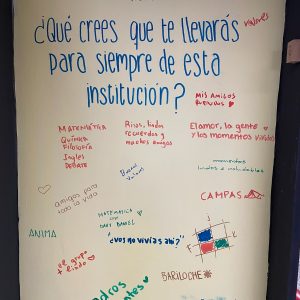 ¿Qué crees que te llevarás
para siempre de esta
institución?
valores
MIS AMIGOS
MATEMÁTICA
QUÍMICA
FILOSOFÍA
Ingles
DEBATE
Risas, lindos
recuerdos y
muchos amigos
El amor, la gente
y los momentos vividos
Buenos
valores
momentos
lindos e inolvidables
amigos para
toda la vida
CAMPAS
MATEMATICA
CON
DANY
¿vos no vivías ahí?
ANIMA
el grupo
+ lindo
BARILOCHE